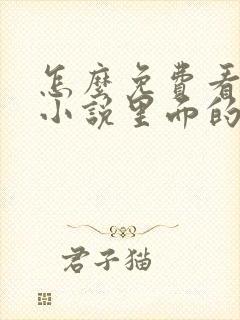 怎麼免費看
小說里面的
君子猫